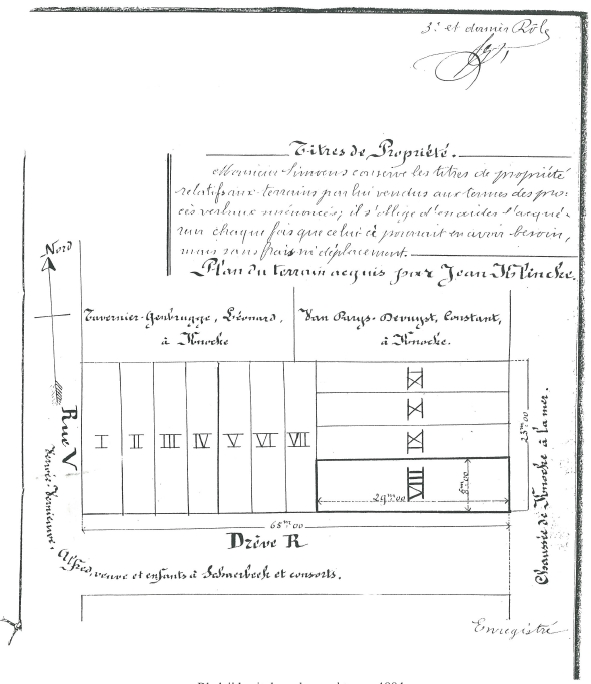 3.e et dernier Rôle
Titres de Propriété.
Monsieur Simoens conserve les titres de propriété
relatifs aux terrains par lui vendus aux termes des pro:
cès verbaux susénoncés; il s'oblige d'en aider l'acqué-
reur chaque fois que celui ci pourrait en avoir besoin,
mais sans frais ni déplacement.
Plan du terrain acquis par Jean
Nord
Tavernier-Genbrugge, Léonard,
à Knocke
Van Parys-Devuyst, Constant,
à Knocke.
I II III IV V VI VII
XI
X
IX
VIII
29m00
8m00
23m00
68m00
Rue V
Drève R
Chaussée de Knocke à la mer.
Alfred, veuve et enfants à Schaerbeek et consorts.
Enregistré